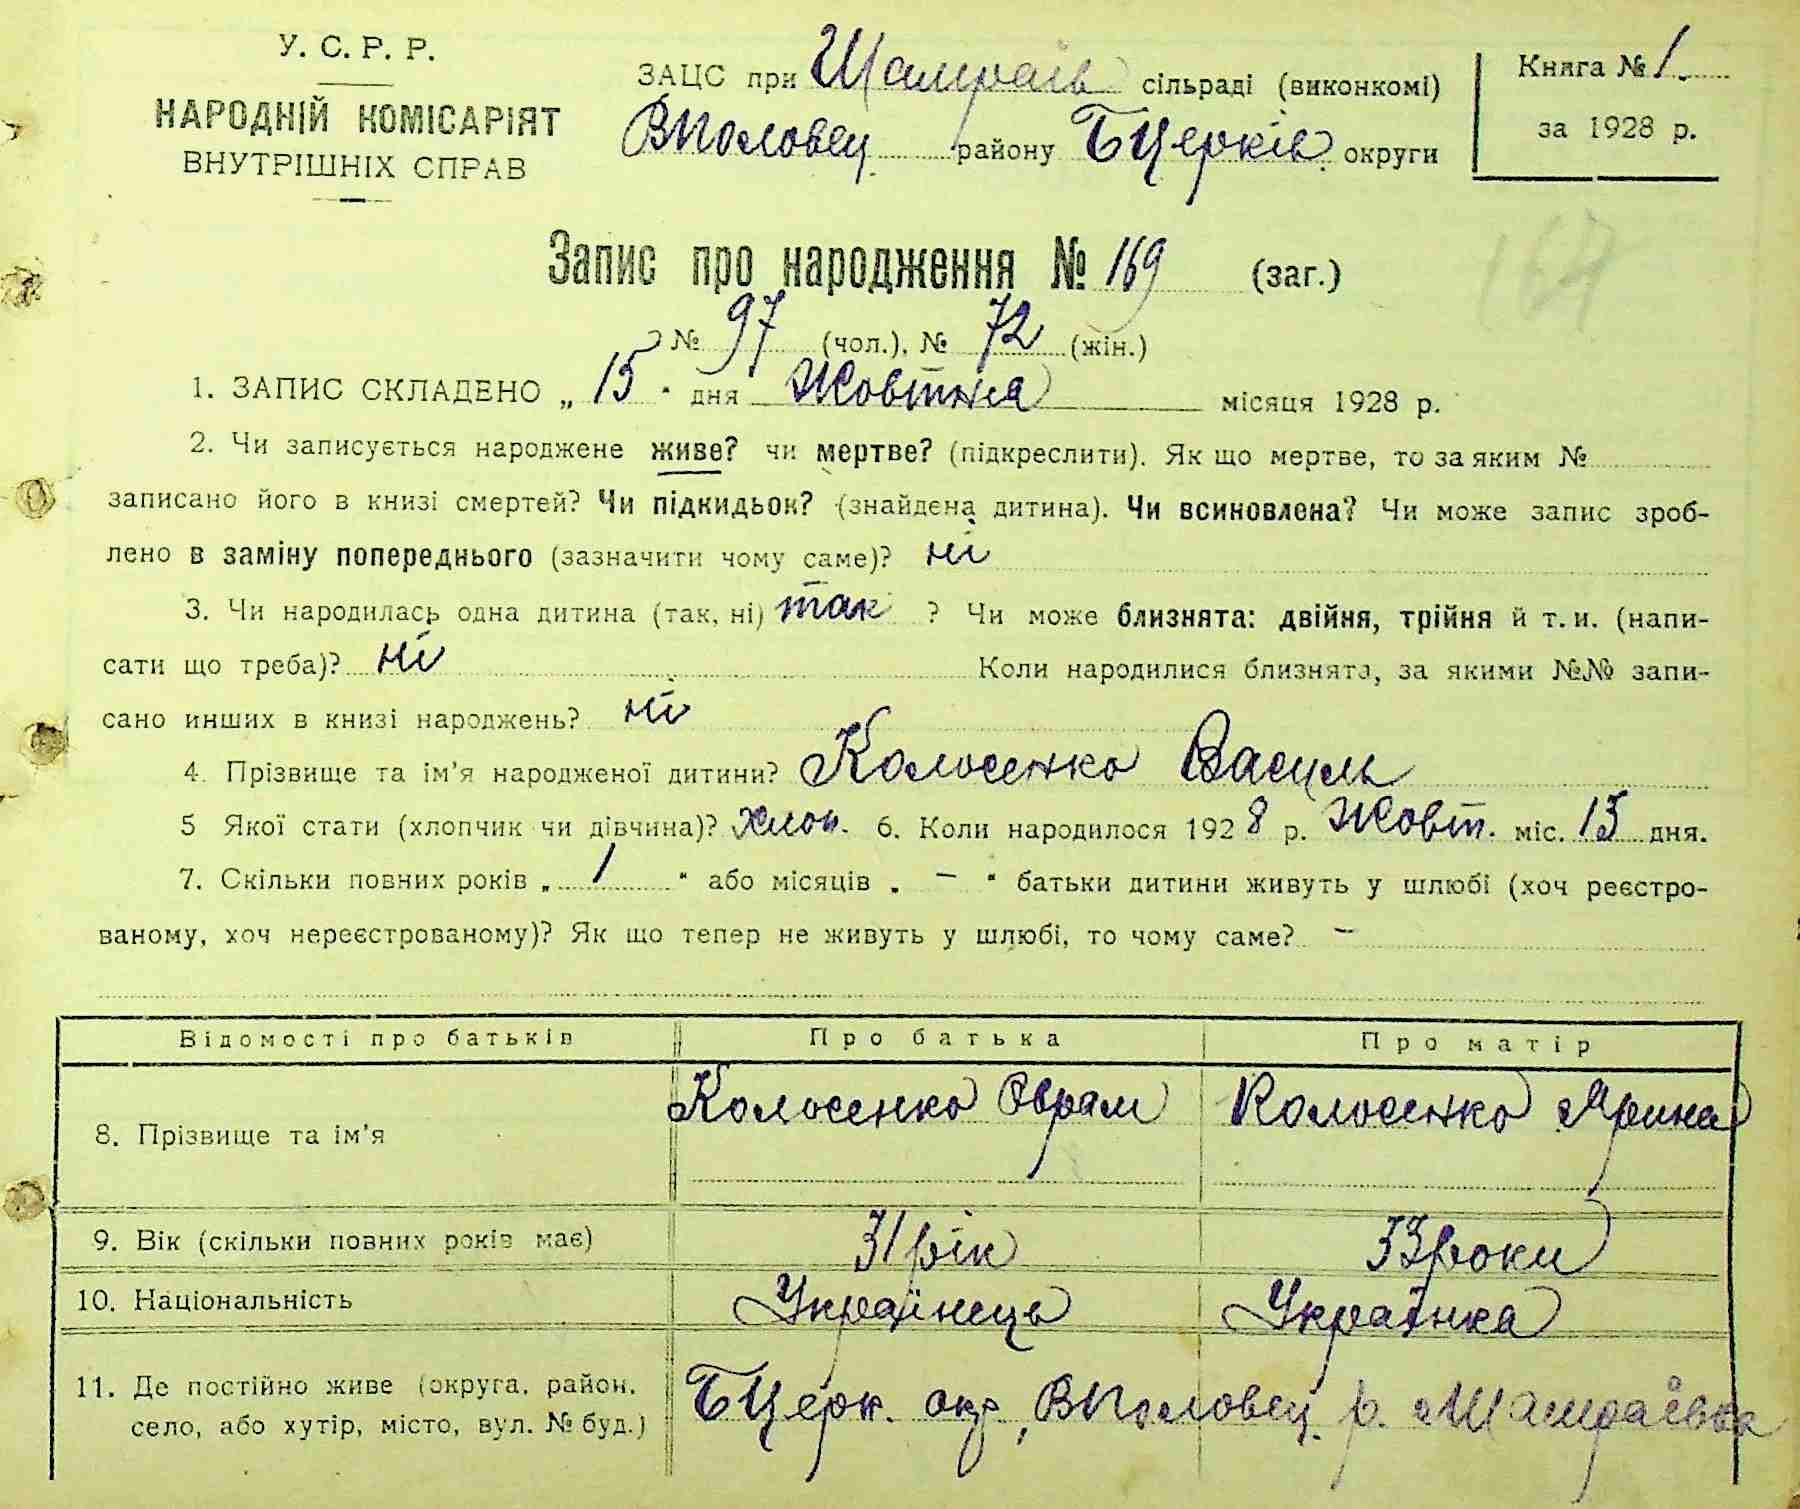 У. С. Р. Р.
НАРОДНІЙ КОМІСАРІЯТ
ВНУТРІШНІХ СПРАВ
ЗАЦС при Шамраїв сільраді (виконкомі)
ВПоловец. району БЦерків. округи
Книга № 1.
за 1928 р.
Запис про народження № 169 (заг.)
№ 97 (чол.), № 72 (жін.)
1. ЗАПИС СКЛАДЕНО „ 15 “ дня Жовтня місяця 1928 р.
2. Чи записується народжене живе? чи мертве? (підкреслити). Як що мертве, то за яким №
записано його в книзі смертей? Чи підкидьок? (знайдена дитина). Чи всиновлена? Чи може запис зроб-
лено в заміну попереднього (зазначити чому саме)? ні
3. Чи народилась одна дитина (так, ні) так ? Чи може близнята: двійня, трійня й т. и. (напи-
сати що треба)? ні Коли народилися близнята, за якими №№ запи-
сано инших в книзі народжень? ні
4. Прізвище та ім'я народженої дитини? Колосенко Василь
5 Якої стати (хлопчик чи дівчина)? хлоп. 6. Коли народилося 1928 р. Жовт. міс. 13 дня.
7. Скільки повних років „ 1 “ або місяців „ – “ батьки дитини живуть у шлюбі (хоч реєстро-
ваному, хоч нереєстрованому)? Як що тепер не живуть у шлюбі, то чому саме? –
Відомості про батьків Про батька Про матір
8. Прізвище та ім'я Колосенко Оврам Колосенко Ярина
9. Вік (скільки повних років має) 31 рік 33 роки
10. Національність Українець Українка
11. Де постійно живе (округа, район, село, або хутір, місто, вул. № буд.) БЦерк. окр, ВПоловец. р. с Шамраївка